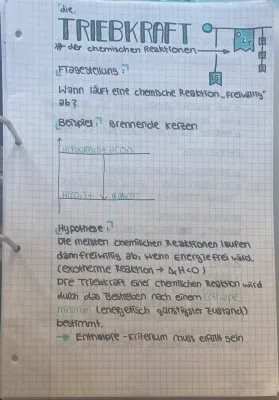 die
TRIEBKRAFT
der chemischen Reaktionen
Fragestellung:
Wann läuft eine chemische Reaktion „freiwillig"
ab?
Beispiel: Brennende Kerzen
Hypothese:
Die meisten chemischen Reaktionen laufen
dann freiwillig ab, wenn Energie frei wird.
(exotherme Reaktion → ΔᵣH<0)
Die Triebkraft einer chemischen Reaktion wird
durch das Bestreben nach einem Enthalpie
minimum (energetisch günstigster Zustand)
bestimmt.
→ Enthalpie-Kriterium muss erfüllt sein